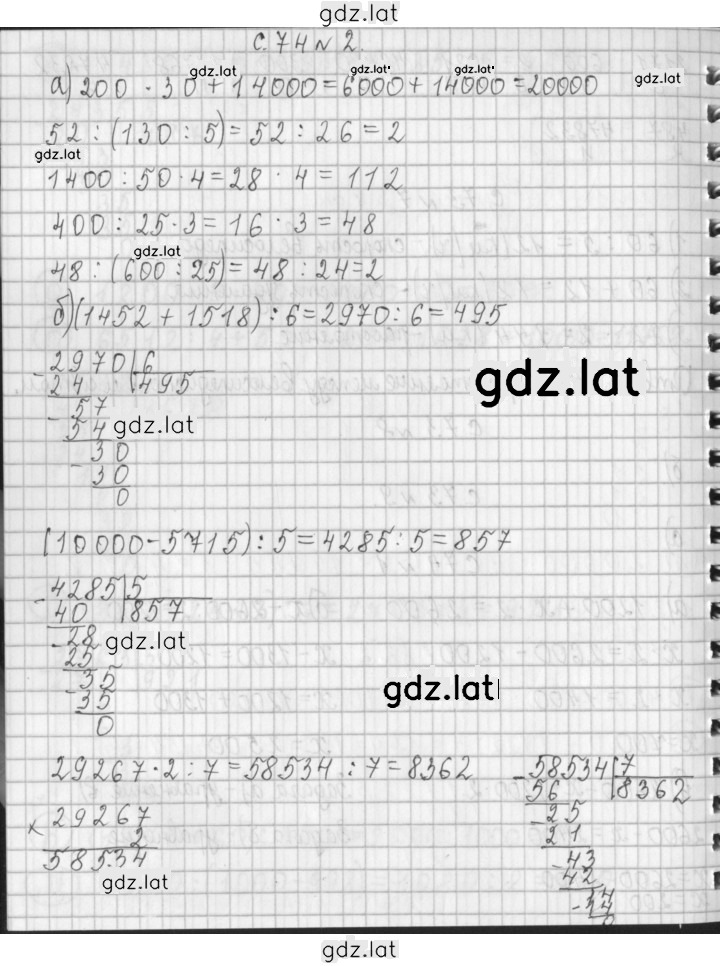 gdz.lat
с. 74 № 2.
gdz.lat gdz.lat gdz.lat gdz.lat
а) 200 · 30 + 14000 = 6000 + 14000 = 20000
52 : (130 : 5) = 52 : 26 = 2
gdz.lat
1400 : 50 · 4 = 28 · 4 = 112
400 : 25 · 3 = 16 · 3 = 48
gdz.lat
48 : (600 : 25) = 48 : 24 = 2
б) (1452 + 1518) : 6 = 2970 : 6 = 495
- 2970 | 6
24 | 495
gdz.lat
- 57
54
gdz.lat
- 30
30
0
(10000 - 5715) : 5 = 4285 : 5 = 857
- 4285 | 5
40 | 857
- 28
gdz.lat
25
- 35
35
gdz.lat
0
29267 · 2 : 7 = 58534 : 7 = 8362
× 29267
2
58534
gdz.lat
- 58534 | 7
56 | 8362
- 25
21
- 43
42
- 14
14
0
gdz.lat